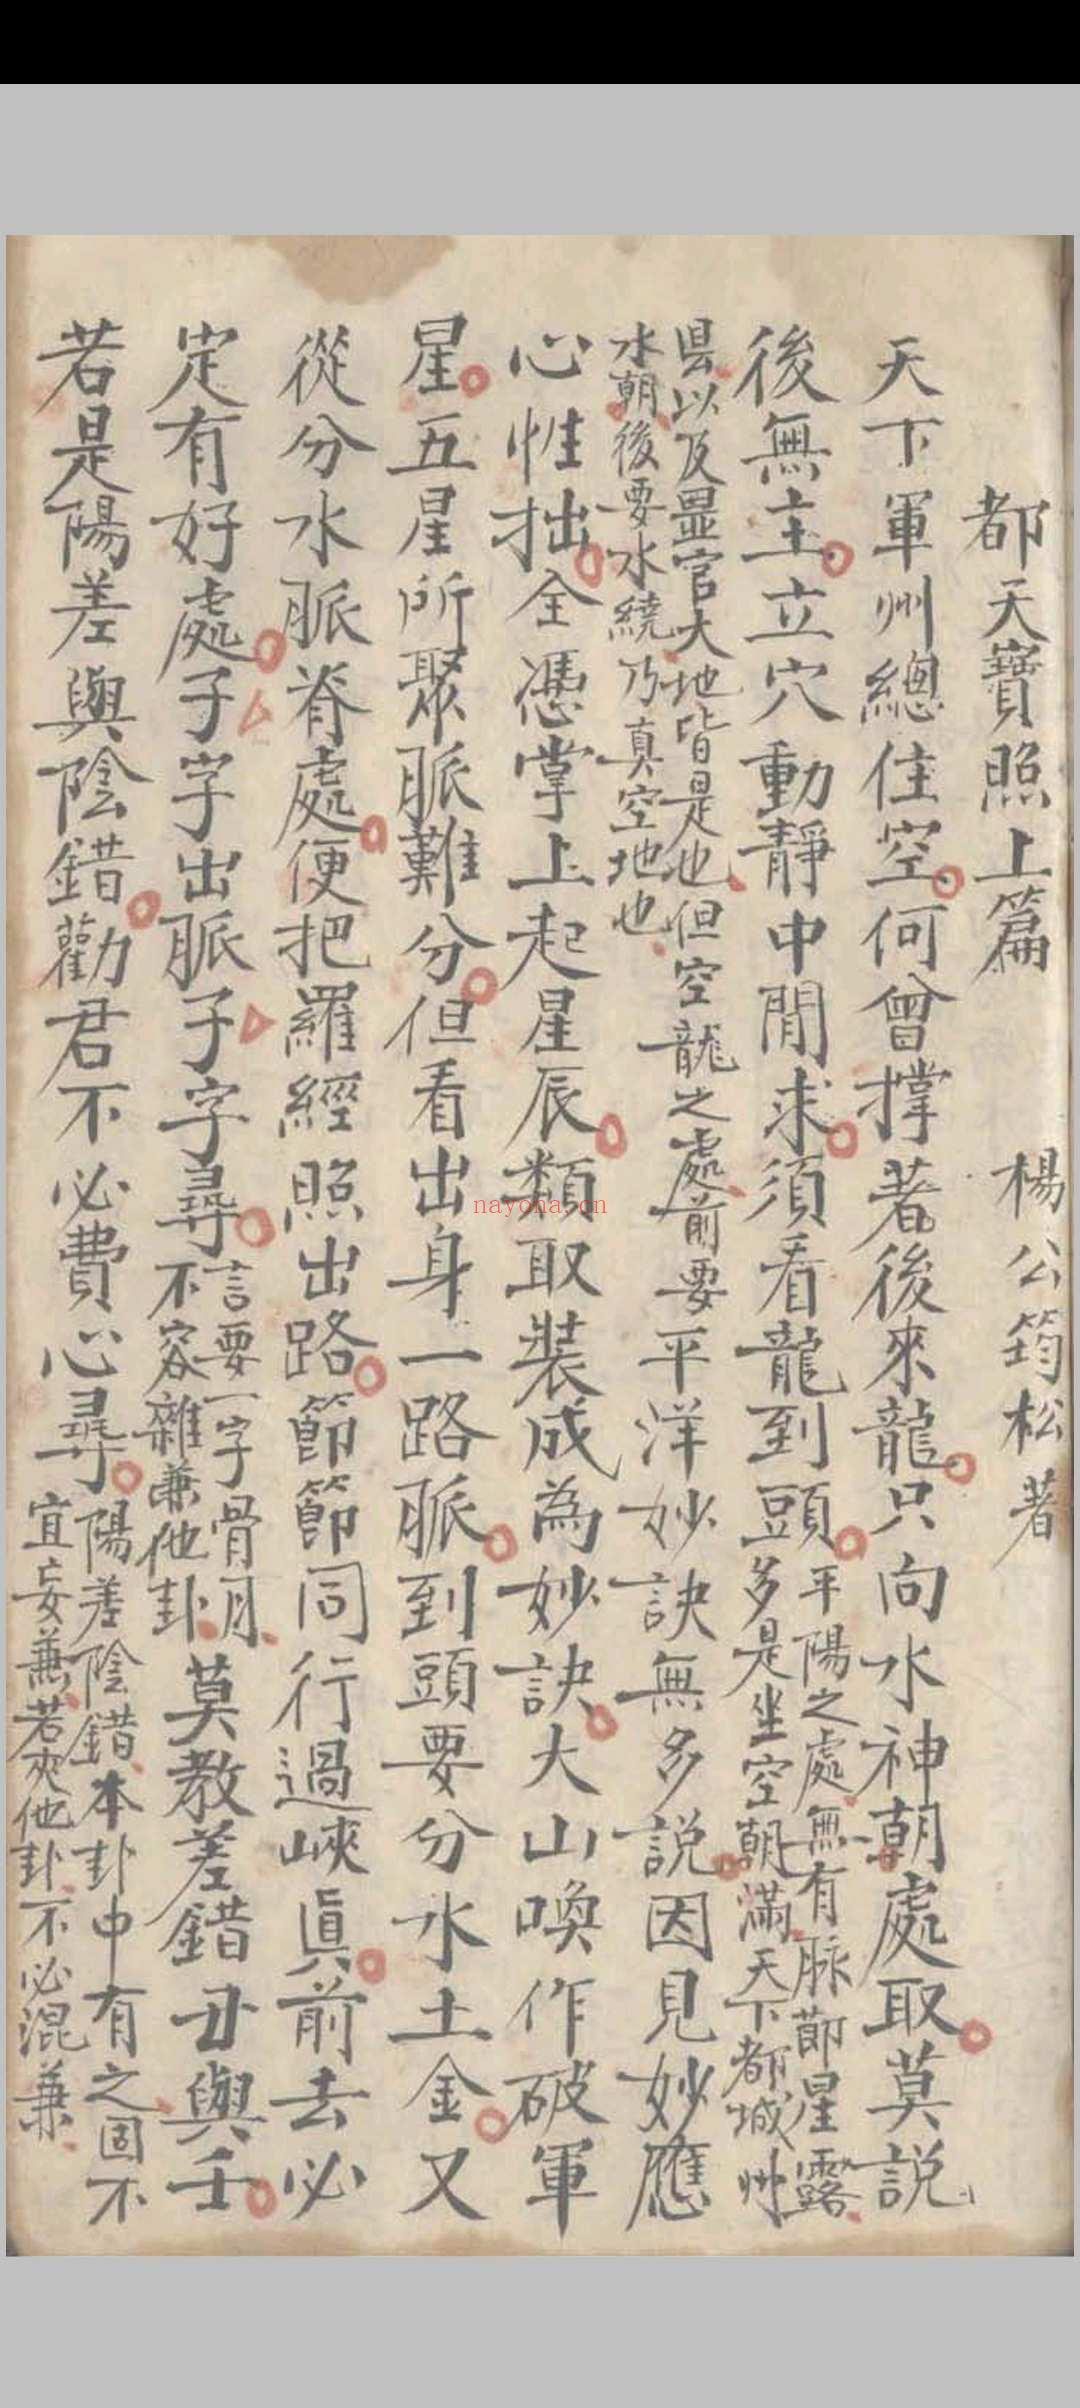 都天寶照上篇　楊公筠松著
天下軍州總住空何曾撑著後來龍只向水神朝處取莫説
後無主立穴動靜中間求須看龍到頭
平陽之處無有脉節星露
多是坐空朝滿天下都城州
県以及
官大地皆是也但空龍之處前要
水朝後要水繞乃真空地也
平洋妙訣無多説因見妙應
心性拙全憑掌上起星辰類取裝成為妙訣大山喚作破軍
星五星所聚脈難分但看出身一路脈到頭要分水土金又
從分水脈脊處便把羅經照出路節節同行過峽眞前去必
定有好處子字出脈子字尋
言要一字骨月
不容雜兼他卦
莫教差錯丑與壬
若是陽差與陰錯勸君不必費心尋
陽差陰錯本卦中有之固不
宜妄兼若夾他卦不必混兼
nayona.cn